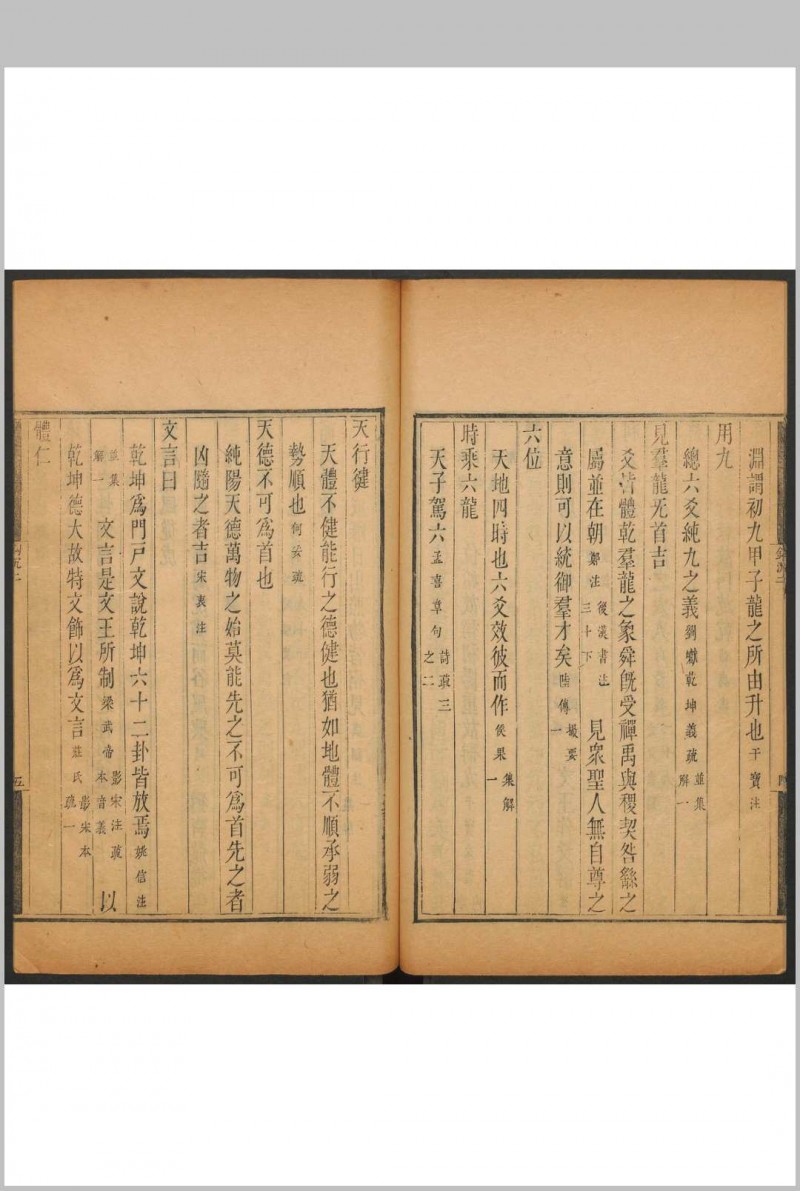 淵謂初九甲子龍之所由升也干寶注
用九
總六爻純九之義劉瓛乾坤義疏並集解一
見羣龍无首吉
爻皆體乾羣龍之象舜旣受禪禹與稷契咎繇之
屬並在朝鄭注後漢書注三十下見衆聖人無自尊之
意則可以統御羣才矣陸傳撮要一
六位
天地四時也六爻效彼而作侯果集解一
時乘六龍
天子駕六孟喜章句詩疏三之二
四
天行健
天體不健能行之德健也猶如地體不順承弱之
勢順也何妥疏
天德不可爲首也
純陽天德萬物之始莫能先之不可爲首先之者
凶隨之者吉宋衷注
文言曰
乾坤爲門戸文說乾坤六十二卦皆放焉姚信注
並集解一文言是文王所制梁武帝影宋注疏本音義以
乾坤德大故特文飾以爲文言莊氏疏影宋本一
體仁
五